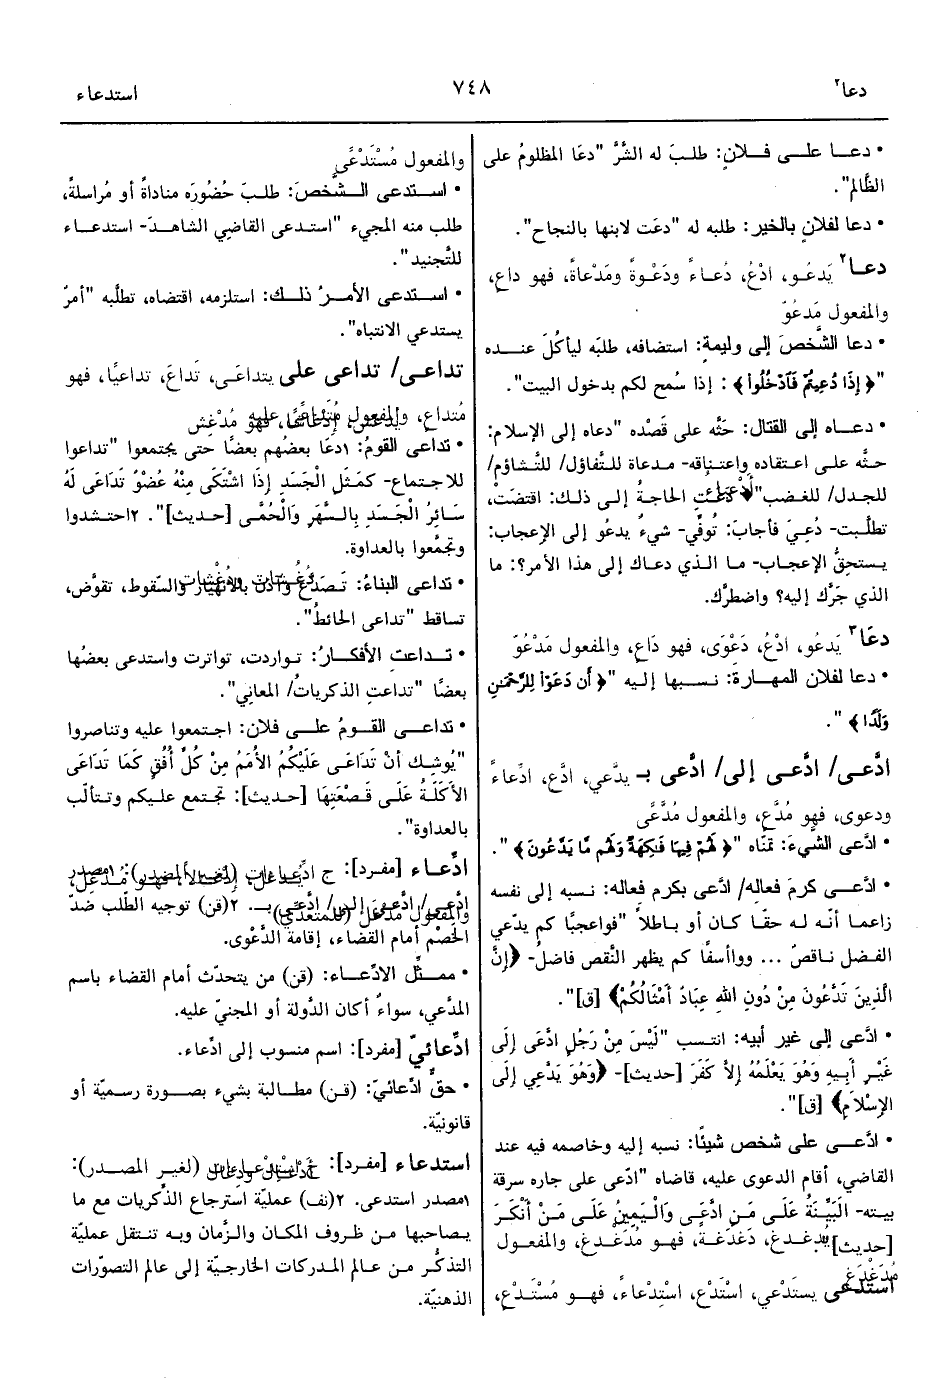 دعا٢
٧٤٨
استدعاء
• دعــا علــى فــلانٍ: طلبَ له الشَّرَّ "دعَا المظلومُ على
الظَّالم".
• دعا لفلانٍ بالخير: طلبه له "دعَت لابنها بالنجاح".
دعــا٢ يَدعـو، ادْعُ، دُعـاءً ودَعْـوةً ومَدْعاةً، فهو داعٍ،
والمفعول مَدعُوّ
• دعا الشَّخصَ إلى وليمةٍ: استضافه، طلبَه ليأكُلَ عنــده
"﴿ إِذَا دُعِيتُمْ فَٱدْخُلُوا۟ ﴾ : إذا سُمح لكم بدخول البيت".
• دعــاه إلى القتال: حثَّه على قصْده "دعاه إلى الإسلام:
حثَّه علـى اعتقاده واعتناقه- مـدعاة للتَّفاؤل/ للتَّشاؤم/
للجدل/ للغضب" الحاجةُ إلـى ذلـك: اقتضَتْ،
تطلَّبت- دُعِـيَ فأجابَ: تُوفِّي- شيءٌ يدعُو إلى الإعجاب:
يستحقُّ الإعجاب- مـا الـذي دعـاك إلى هذا الأمر؟: ما
الذي جَرَّك إليه؟ واضطرَّك.
دعَا٣ يَدعُو، ادْعُ، دَعْوَى، فهو دَاعٍ، والمفعول مَدْعُوّ
• دعا لفلان المهـارة: نـسبها إليه "﴿ أَن دَعَوْا۟ لِلرَّحْمَٰنِ
وَلَدًا ﴾ ".
ادَّعـى/ ادَّعـى إلى/ ادَّعى بـ يدَّعي، ادَّعِ، ادِّعاءً
ودعوى، فهو مُدَّعٍ، والمفعول مُدَّعًى
• ادَّعى الشيءَ: تمنَّاه "﴿ لَهُمْ فِيهَا فَٰكِهَةٌ وَلَهُم مَّا يَدَّعُونَ ﴾ ".
• ادَّعــى كرمَ فعالِه/ ادَّعى بكرم فعاله: نسبه إلى نفسه
زاعما أنـه لـه حقـا كـان أو بـاطلاً "فواعجبًا كم يدّعي
الفـضل نـاقصٌ ... وواأسفًا كم يظهر النَّقص فاضلُ- ﴿إِنَّ
الَّذِينَ تَدَّعُونَ مِنْ دُونِ اللهِ عِبَادٌ أَمْثَالُكُمْ﴾ [ق]".
• ادَّعى إلى غير أبيه: انتسب "لَيْسَ مِنْ رَجُلٍ ادَّعَى إِلَى
غَيْـرِ أَبِيهِ وَهُوَ يَعْلَمُهُ إِلاَّ كَفَرَ [حديث]- ﴿وَهُوَ يَدَّعِي إِلَى
الإِسْلاَمِ﴾ [ق]".
• ادَّعـى على شخص شيئًا: نسبه إليه وخاصمه فيه عند
القاضي، أقام الدعوى عليه، قاضاه "ادّعى على جاره سرقة
بيته- الْبَيِّنَةُ عَلَـى مَـنِ ادَّعَـى وَالْيَمِينُ عَلَـى مَـنْ أَنْكَـرَ
[حديث] يدغـدغ، دَغدَغـة، فهـو مـدَغدِغ، والمفعـول
مُدَغْدَغ
استدعى يستدعي، استَدْعِ، استِدْعاءً، فهـو مُسْتَـدْعٍ،
والمفعول مُسْتَدْعًى
• اسـتدعى الـشخصَ: طلـبَ حُضُورَه مناداةً أو مُراسلةً،
طلب منه المجيء "استـدعى القاضِي الشاهـدَ- استدعـاء
للتَّجنيد".
• اسـتدعى الأمـرُ ذلـك: استلزمه، اقتضاه، تطلَّبه "أمرٌ
يستدعي الانتباه".
تداعـى/ تداعى على يتداعَـى، تَداعَ، تداعيًا، فهو
مُتداعٍ، والمفعول مُتداعًى عليه
• تداعى القومُ: ١دعَا بعضُهم بعضًا حتى يجتمعوا "تداعوا
للاجتماع- كمَـثَلِ الْجَسَدِ إِذَا اشْتَكَى مِنْهُ عُضْوٌ تَدَاعَى لَهُ
سَـائِرُ الْجَـسَدِ بِالـسَّهَرِ وَالْحُمَّـى [حديث]". ٢احتـشدوا
وتجمَّعوا بالعداوة.
• تداعى البناءُ: تَـصَدَّع وآذن بالانهيار والسّقوط، تقوَّض،
تساقط "تداعى الحائطُ".
• تــداعتِ الأفكــارُ: تـواردت، تواترت واستدعى بعضُها
بعضًا "تداعتِ الذكرياتُ/ المعاني".
• تداعـى القـومُ علـى فلان: اجتمعوا عليه وتناصروا
"يُوشِـكُ أَنْ تَدَاعَـى عَلَيْكُمُ الأُمَمُ مِنْ كُلِّ أُفُقٍ كَمَا تَدَاعَى
الأَكَلَـةُ عَلَـى قَـصْعَتِهَا [حديث]: تجتمع علـيكم وتـتألّب
بالعداوة".
ادِّعـاء [مفرد]: ج ادِّعاءات (لغير المصدر): ١مصدر
ادَّعى/ ادَّعى إلى/ ادَّعى بـ. ٢(قن) توجيه الطَّلب ضدّ
الخصْم أمام القضاء، إقامة الدَّعْوى.
• ممـثِّل الادِّعـاء: (قن) من يتحدّث أمام القضاء باسم
المدَّعي، سواءٌ أكان الدَّولة أو المجنيّ عليه.
ادِّعائيّ [مفرد]: اسم منسوب إلى ادِّعاء.
• حقٌّ ادِّعائيّ: (قـن) مطـالبة بشيء بـصـورة رسميّـة أو
قانونيّة.
استدعاء [مفرد]: ج استدعاءات (لغير المصـدر):
١مصدر استدعى. ٢(نف) عمليّة استرجاع الذِّكريات مع ما
يـصاحبها مـن ظـروف المكان والزَّمان وبـه تنـتقل عمليـة
التذكُّـر مـن عـالم المـدركات الخارجـيَّة إلى عالم التصوّرات
الذهنيّة.